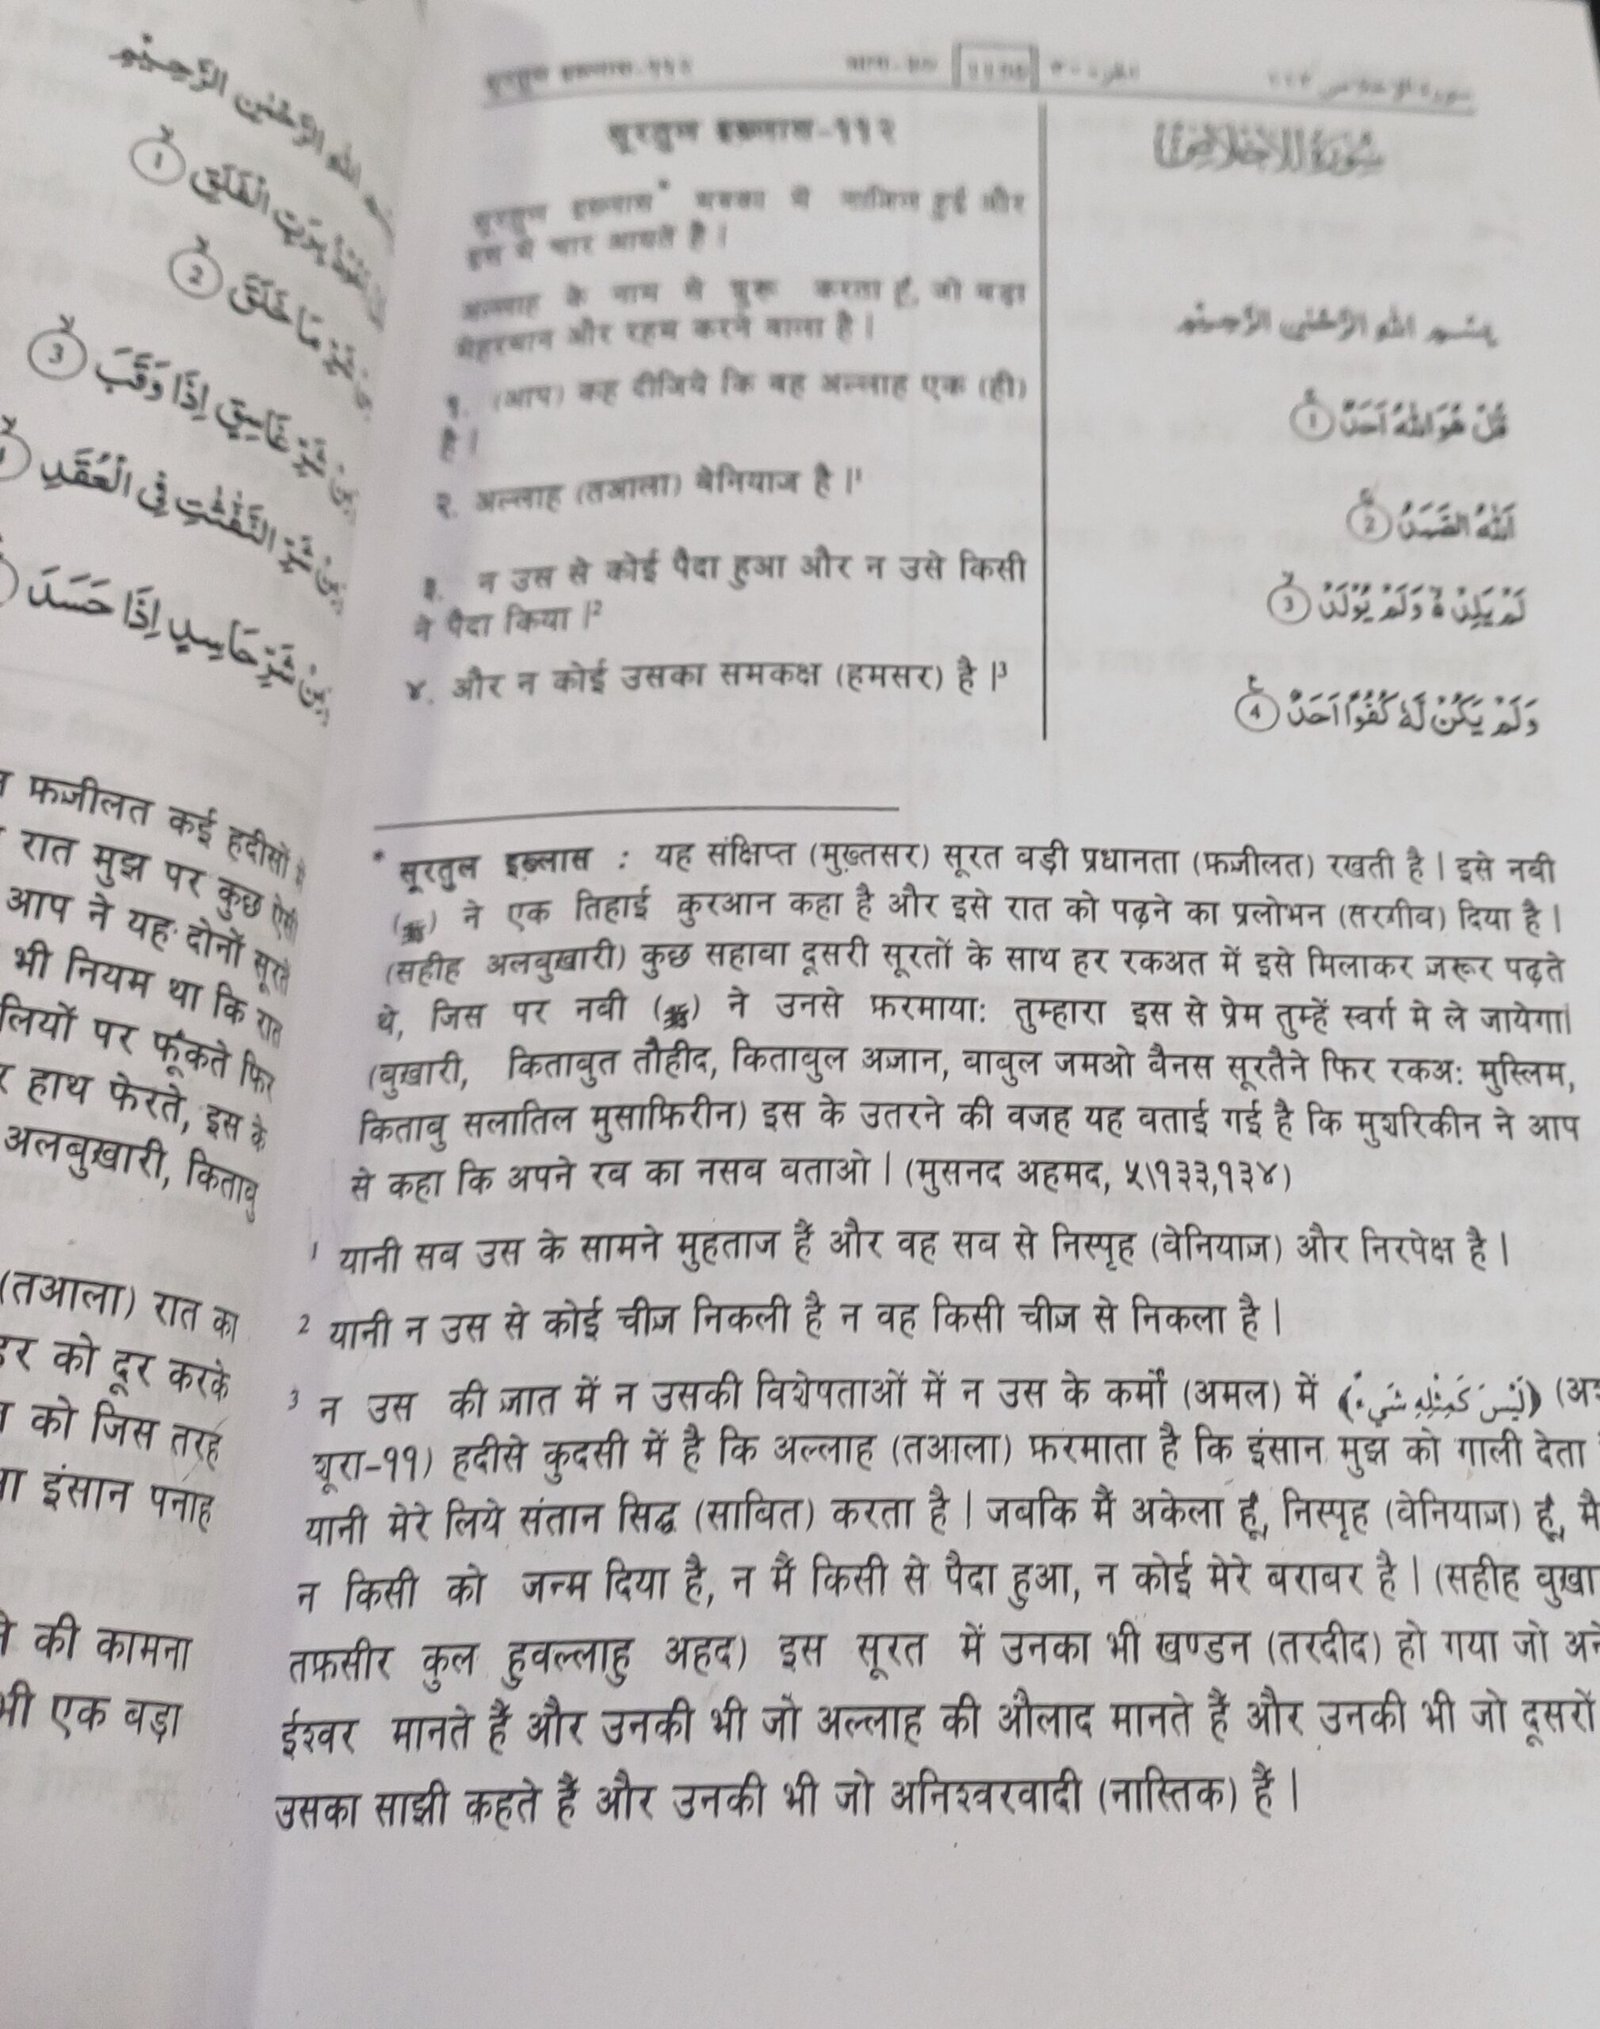 الله الرَّحْمٰنِ الرَّحِيْمِ
بِرَبِّ الْفَلَقِ ①
مَا خَلَقَ ②
غَاسِقٍ اِذَا وَقَبَ ③
النَّفّٰثٰتِ فِي الْعُقَدِ
حَاسِدٍ اِذَا حَسَدَ
फ़ज़ीलत कई हदीसों
रात मुझ पर कुछ ऐसी
आप ने यह दोनों सूरतें
भी नियम था कि रात
लियों पर फूंकते फिर
हाथ फेरते, इस के
अलबुख़ारी, किताबु
(तआला) रात का
को दूर करके
को जिस तरह
इंसान पनाह
की कामना
भी एक बड़ा
सूरतुल इख़्लास-११२
सूरतुल इख़्लास-११२
सूरतुल इख़्लास* मक्का में नाज़िल हुई और
इस में चार आयतें हैं |
अल्लाह के नाम से शुरू करता हूँ, जो बड़ा
मेहरबान और रहम करने वाला है |
१. (आप) कह दीजिये कि वह अल्लाह एक (ही)
है |
२. अल्लाह (तआला) बेनियाज़ है |¹
३. न उस से कोई पैदा हुआ और न उसे किसी
ने पैदा किया |²
४. और न कोई उसका समकक्ष (हमसर) है |³
سُوْرَةُ الْاِخْلَاصِ
بِسْمِ اللهِ الرَّحْمٰنِ الرَّحِيْمِ
قُلْ هُوَ اللّٰهُ اَحَدٌ ①
اَللّٰهُ الصَّمَدُ ②
لَمْ يَلِدْ ۙ وَلَمْ يُوْلَدْ ③
وَلَمْ يَكُنْ لَّهٗ كُفُوًا اَحَدٌ ④
* सूरतुल इख़्लास : यह संक्षिप्त (मुख़्तसर) सूरत बड़ी प्रधानता (फ़ज़ीलत) रखती है | इसे नबी
(ﷺ) ने एक तिहाई क़ुरआन कहा है और इसे रात को पढ़ने का प्रलोभन (तरग़ीब) दिया है |
(सहीह अलबुख़ारी) कुछ सहाबा दूसरी सूरतों के साथ हर रकअत में इसे मिलाकर ज़रूर पढ़ते
थे, जिस पर नबी (ﷺ) ने उनसे फ़रमाया: तुम्हारा इस से प्रेम तुम्हें स्वर्ग मे ले जायेगा|
(बुख़ारी, किताबुत तौहीद, किताबुल अज़ान, बाबुल जमओ बैनस सूरतैने फिर रकअ: मुस्लिम,
किताबु सलातिल मुसाफ़िरीन) इस के उतरने की वजह यह बताई गई है कि मुशरिकीन ने आप
से कहा कि अपने रब का नसब बताओ | (मुसनद अहमद, ५\१३३,१३४)
¹ यानी सब उस के सामने मुहताज हैं और वह सब से निस्पृह (बेनियाज़) और निरपेक्ष है |
² यानी न उस से कोई चीज़ निकली है न वह किसी चीज़ से निकला है |
³ न उस की ज़ात में न उसकी विशेषताओं में न उस के कर्मों (अमल) में ﴿لَيْسَ كَمِثْلِهٖ شَيْءٌ﴾
शूरा-११) हदीसे कुदसी में है कि अल्लाह (तआला) फ़रमाता है कि इंसान मुझ को गाली देता
यानी मेरे लिये संतान सिद्ध (साबित) करता है | जबकि मैं अकेला हूँ, निस्पृह (बेनियाज़) हूँ, मैं
न किसी को जन्म दिया है, न मैं किसी से पैदा हुआ, न कोई मेरे बराबर है | (सहीह बुख़ा
तफ़सीर कुल हुवल्लाहु अहद) इस सूरत में उनका भी खण्डन (तरदीद) हो गया जो
ईश्वर मानते हैं और उनकी भी जो अल्लाह की औलाद मानते हैं और उनकी भी जो दूसरों
उसका साझी कहते हैं और उनकी भी जो अनिश्वरवादी (नास्तिक) हैं |